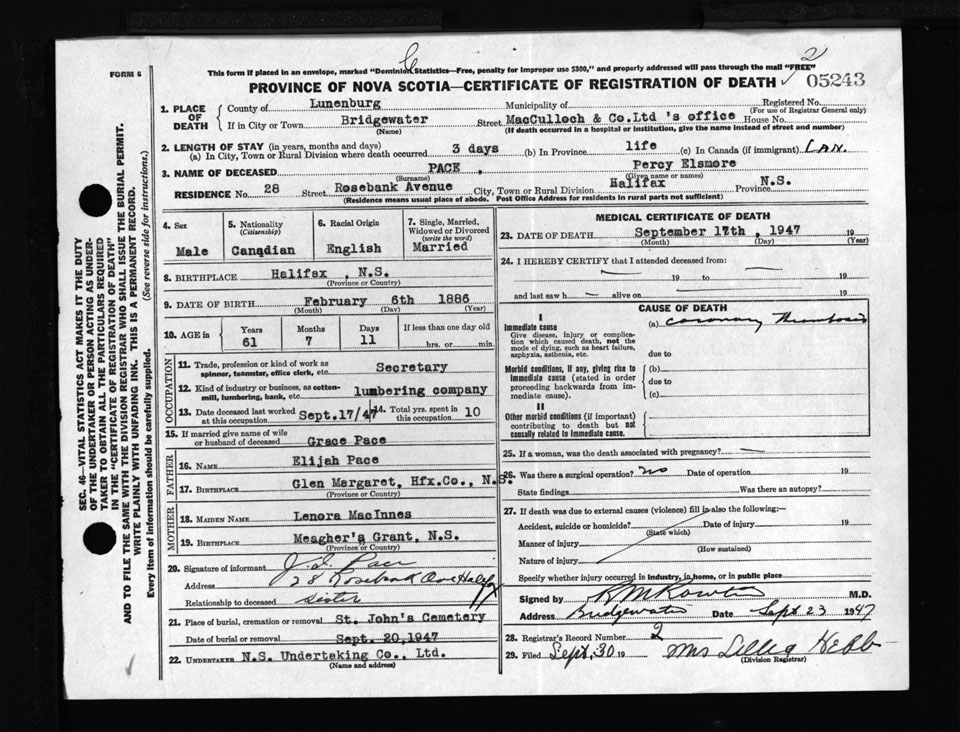 This form if placed in an envelope, marked "Dominion Statistics—Free, penalty for improper use $300," and properly addressed will pass through the mail "FREE"
2
FORM 6
PROVINCE OF NOVA SCOTIA—CERTIFICATE OF REGISTRATION OF DEATH 05243
1. PLACE OF DEATH County of Lunenburg Municipality of Registered No.
(For use of Registrar General only)
If in City or Town Bridgewater Street MacCulloch & Co.Ltd 's office House No.
(Name) (If death occurred in a hospital or institution, give the name instead of street and number)
2. LENGTH OF STAY (in years, months and days)
(a) In City, Town or Rural Division where death occurred 3 days (b) In Province life (c) In Canada (if immigrant) Can.
3. NAME OF DECEASED PACE, Percy Elsmore
(Surname) (Given name or names)
RESIDENCE No. 28 Street Rosebank Avenue City, Town or Rural Division Halifax Province N.S.
(Residence means usual place of abode. Post Office Address for residents in rural parts not sufficient)
4. Sex Male
5. Nationality (Citizenship) Canadian
6. Racial Origin English
7. Single, Married, Widowed or Divorced (write the word) Married
8. BIRTHPLACE Halifax , N.S.
(Province or Country)
9. DATE OF BIRTH February 6th 1886
(Month) (Day) (Year)
10. AGE in Years Months Days If less than one day old
61 7 11 hrs. or min.
OCCUPATION
11. Trade, profession or kind of work as spinner, teamster, office clerk, etc. Secretary
12. Kind of industry or business, as cotton-mill, lumbering, bank, etc. lumbering company
13. Date deceased last worked at this occupation Sept.17/47
14. Total yrs. spent in this occupation 10
15. If married give name of wife or husband of deceased Grace Pace
FATHER
16. NAME Elijah Pace
17. BIRTHPLACE Glen Margaret, Hfx.Co., N.S.
(Province or Country)
MOTHER
18. MAIDEN NAME Lenora MacInnes
19. BIRTHPLACE Meagher's Grant, N.S.
(Province or Country)
20. Signature of informant Pace
Address 28 Rosebank Ave Halifax
Relationship to deceased sister
21. Place of burial, cremation or removal St. John's Cemetery
Date of burial or removal Sept. 20,1947
22. UNDERTAKER N.S. Undertaking Co., Ltd.
(Name and address)
MEDICAL CERTIFICATE OF DEATH
23. DATE OF DEATH September 17th , 1947 19
(Month) (Day) (Year)
24. I HEREBY CERTIFY that I attended deceased from:
19 to 19
and last saw h alive on 19
CAUSE OF DEATH
I
Immediate cause (a) coronary thrombosis
Give disease, injury or complication which caused death, not the mode of dying, such as heart failure, asphyxia, asthenia, etc.
due to
Morbid conditions, if any, giving rise to immediate cause (stated in order proceeding backwards from immediate cause).
(b)
due to
(c)
II
Other morbid conditions (if important) contributing to death but not causally related to immediate cause.
25. If a woman, was the death associated with pregnancy?
26. Was there a surgical operation? no Date of operation 19
State findings Was there an autopsy?
27. If death was due to external causes (violence) fill in also the following:—
Accident, suicide or homicide? Date of injury 19
(State which)
Manner of injury
(How sustained)
Nature of injury
Specify whether injury occurred in industry, in home, or in public place
Signed by M.D.
Address Bridgewater Date Sept 23 1947
28. Registrar's Record Number 2
29. Filed Sept. 30 19 Mrs Hebb
(Division Registrar)
SEC. 46—VITAL STATISTICS ACT MAKES IT THE DUTY
OF THE UNDERTAKER OR PERSON ACTING AS UNDER-
TAKER TO OBTAIN ALL THE PARTICULARS REQUIRED
IN THE "CERTIFICATE OF REGISTRATION OF DEATH"
AND TO FILE THE SAME WITH THE DIVISION REGISTRAR WHO SHALL ISSUE THE BURIAL PERMIT.
WRITE PLAINLY WITH UNFADING INK. THIS IS A PERMANENT RECORD.
Every item of information should be carefully supplied. (See reverse side for instructions.)